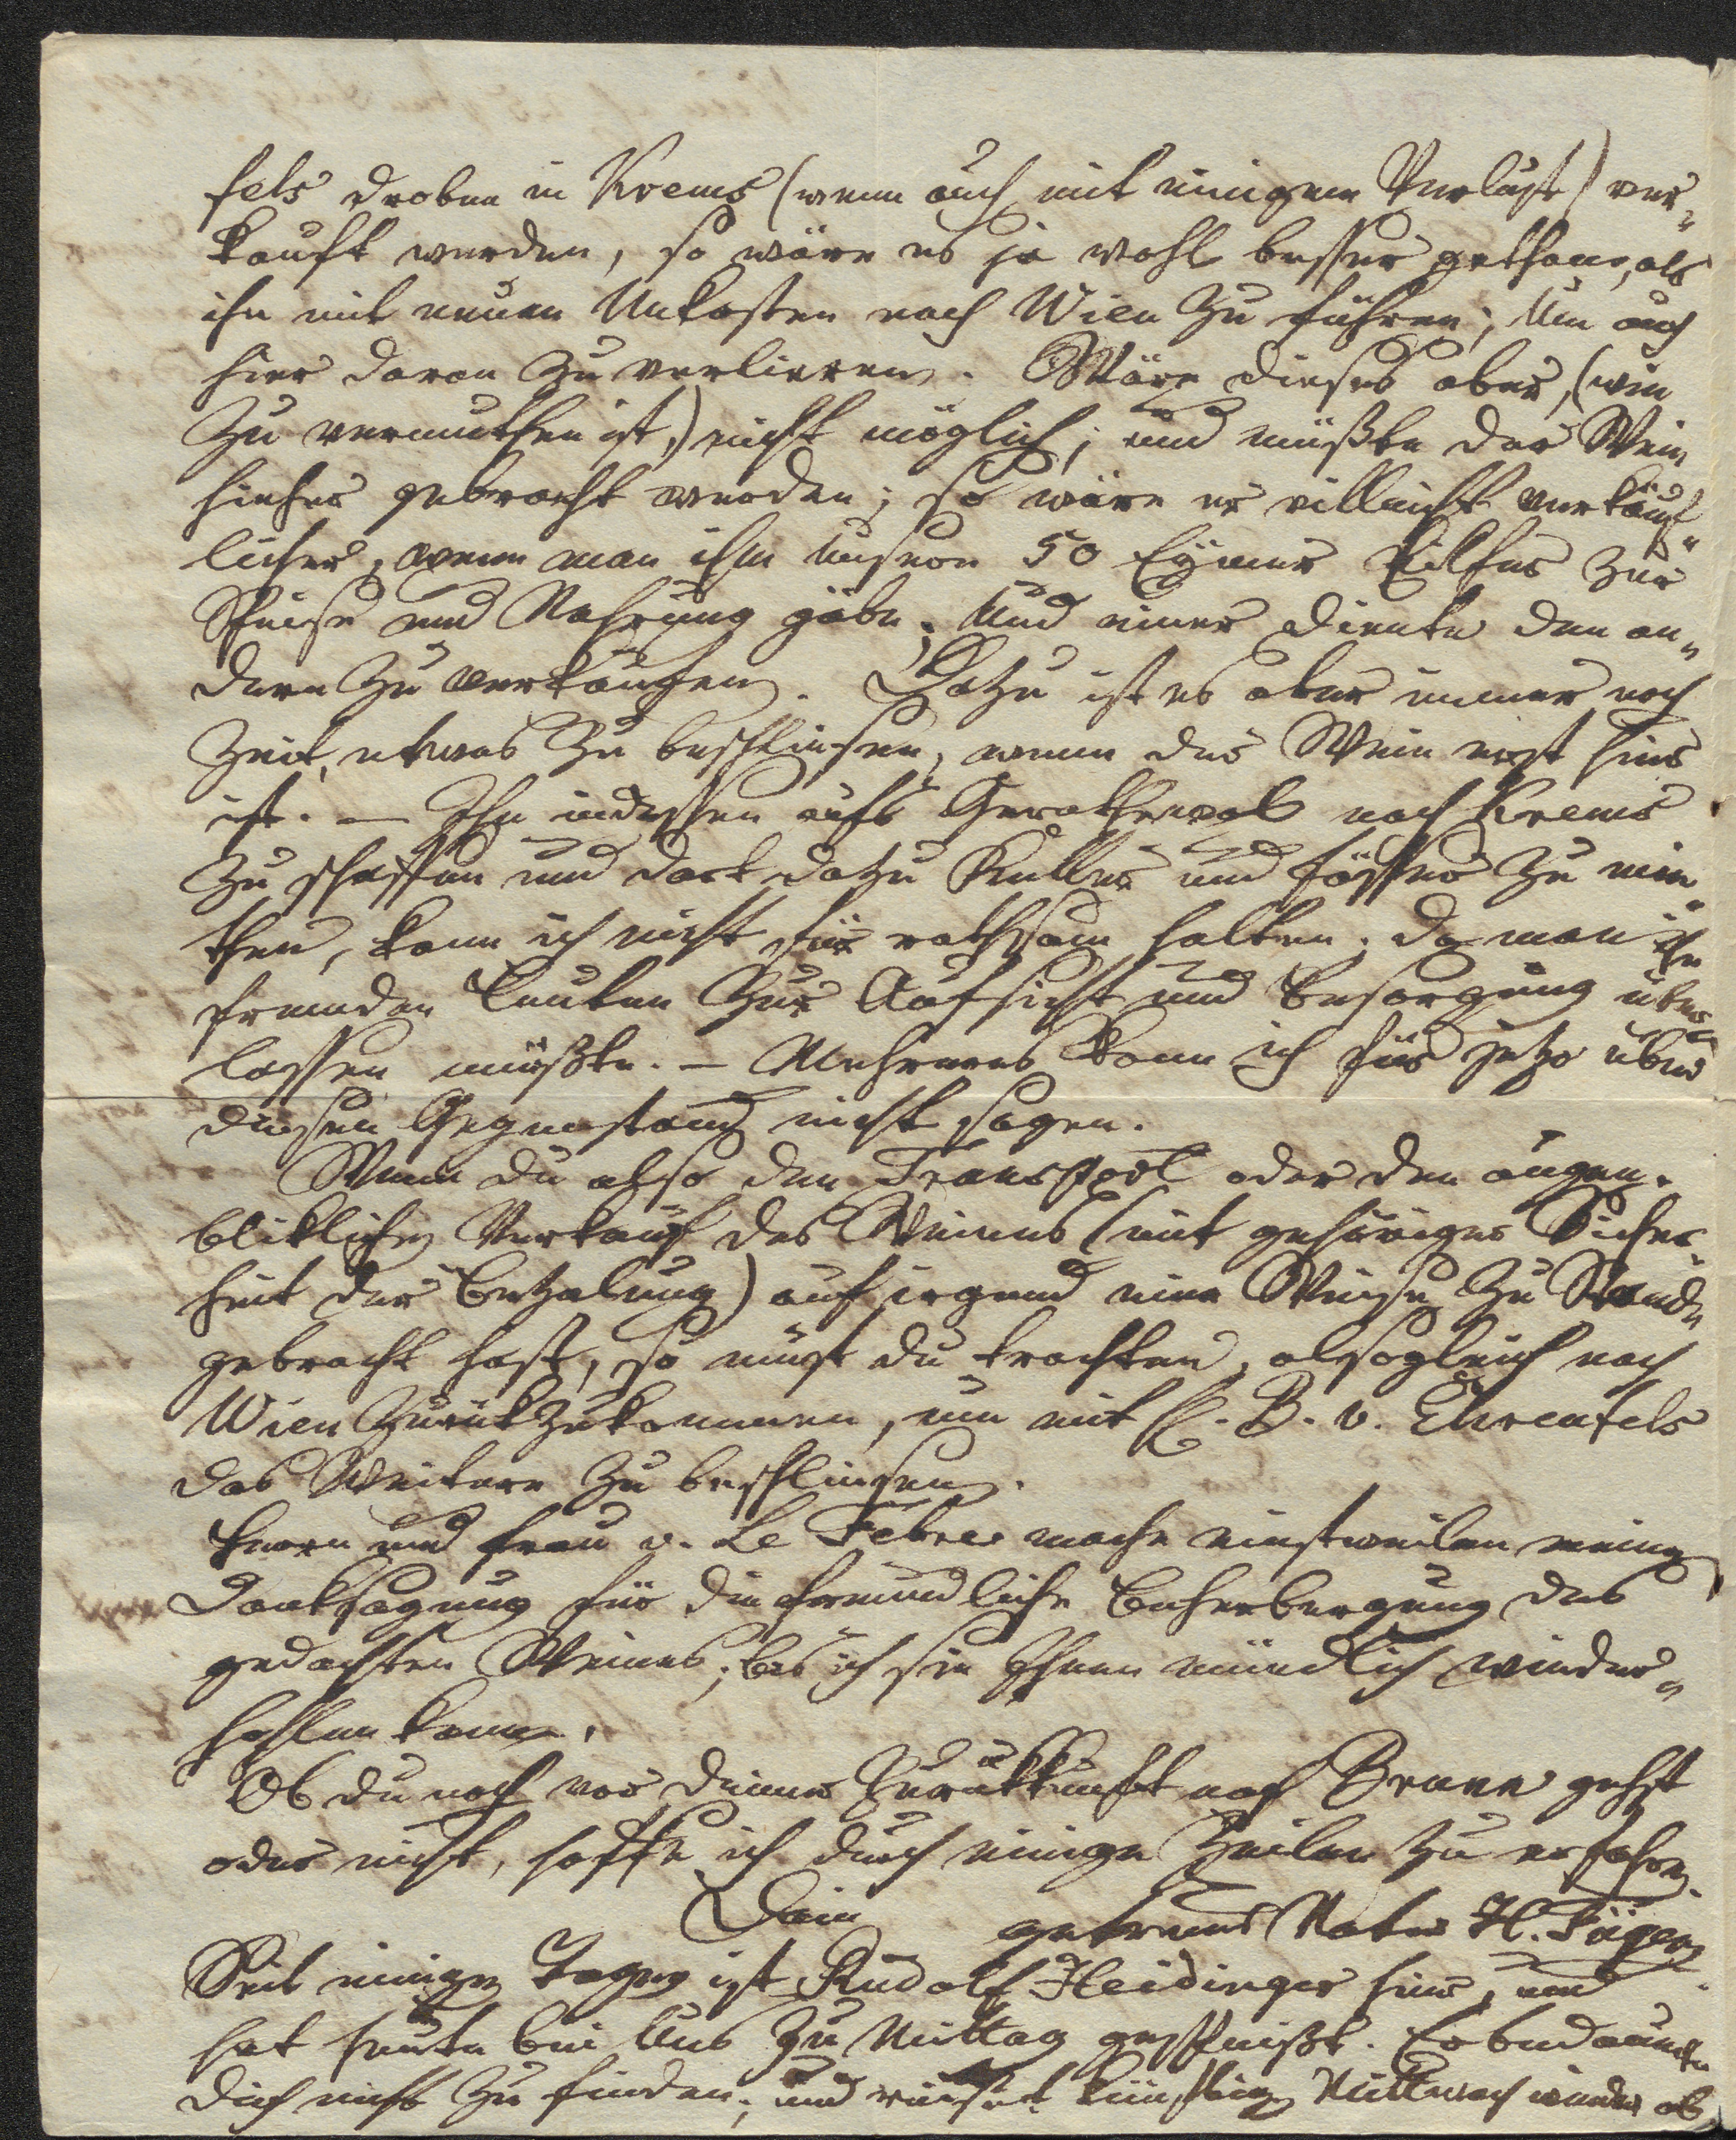 fels droben in Krems (wenn auch mit einigem Verlust) ver„
kauft werden, so wäre es ja wohl besser gethan, als
ihn mit neuen Unkosten nach Wien zu führen; Um auch
hier daran zu verlieren. Wäre dieses aber, (wie
zu vermuthen ist,) nicht möglich; und müßte der Wein
hieher gebracht werden; so wäre er villeicht verkäuf„
licher, wenn man ihm unsere 50 Eymer Eilfer zur
Speise und Nahrung gäbe; Und einer diente den an„
dern zu verkaufen. Dazu ist es aber immer noch
Zeit, etwas zu beschliesen, wenn der Wein erst hier
ist. — Ihn indessen aufs Gerathewol nach Krems
zu schaffen und dort dazu Keller und Fässer zu mie„
then, kann ich nicht für rathsam halten; da man ihn
fremden Leuten zur Aufsicht und Besorgung über„
lassen müßte. — Mehreres kann ich für jetzo über
diesen Gegenstand nicht sagen.
Wenn du also den Transport oder den augen„
bliklichen Verkauf des Weines (mit gehöriger Sicher„
heit der Bezalung) auf irgend eine Weise zu Stande
gebracht hast, so must du trachten, alsogleich nach
Wien zurükzukommen, um mit H. B. v. Ehrenfels
das Weitere zu beschliesen.
Herrn und Frau v. Le Febre mache einstweilen meine
Danksagung für die freundliche Beherbergung des
gedachten Weines; bis ich sie Ihnen mündlich wieder„
hohlen kann.
Ob du noch vor deiner Zurükkunft nach Brunn gehst
oder nicht, hoffe ich durch einige Zeilen zu erfahren.
Dein getreuer Vater H. Füger
Seit einigen Tagen ist Rudolf Heidinger hier, und
hat heute bei Uns zu Mittag gespeißt. Er bedauerte
dich nicht zu finden; und reiset künftigen Mittwoch wieder ab